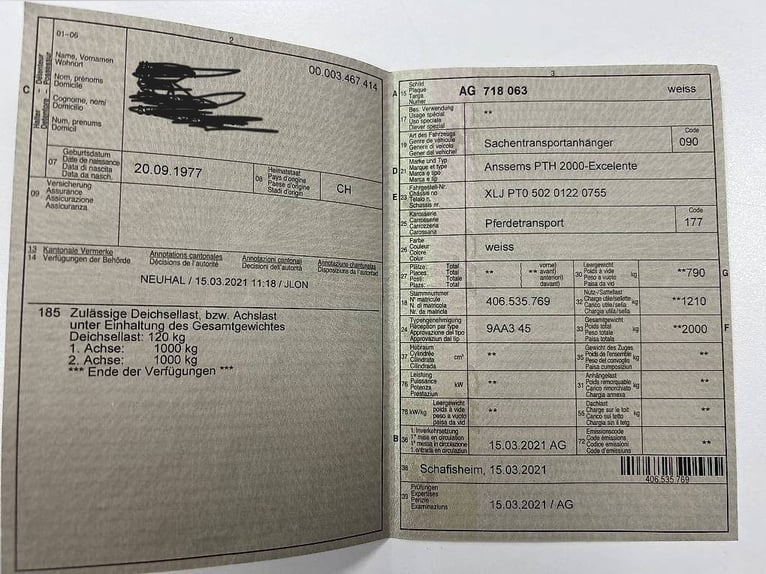 2
01-06
Name, Vornamen
Wohnort
Nom, prénoms
Domicile
Cognome, nomi
Domicilio
Num, prenums
Domicil
C
Halter Détenteur
Detentore Possessur
00.003.467 414
07
Geburtsdatum
Date de naissance
Data di nascita
Data da nasch.
20.09.1977
08
Heimatstaat
Pays d'origine
Paese d'origine
Stadi d'origin
CH
09
Versicherung
Assurance
Assicurazione
Assicuranza
13
14
Kantonale Vermerke
Verfügungen der Behörde
Annotations cantonales
Décisions de l'autorité
Annotazioni cantonali
Decisioni dell'autorità
Annotaziuns chantunalas
Disposiziuns da l'autoritad
NEUHAL / 15.03.2021 11:18 / JLON
185 Zulässige Deichsellast, bzw. Achslast
unter Einhaltung des Gesamtgewichtes
Deichsellast: 120 kg
1. Achse: 1000 kg
2. Achse: 1000 kg
*** Ende der Verfügungen ***
3
A
15
Schild
Plaque
Targa
Numer
AG 718 063
weiss
17
Bes. Verwendung
Usage spécial
Uso speciale
Diever spezial
**
19
Art des Fahrzeugs
Genre de véhicule
Genere di veicolo
Gener dal vehichel
Sachentransportanhänger
Code
090
D
21
Marke und Typ
Marque et type
Marca e tipo
Marca e tip
Anssems PTH 2000-Excelente
E
23
Fahrgestell-Nr.
Châssis no
Telaio n.
Schassis nr.
XLJ PT0 502 0122 0755
25
Karosserie
Carrosserie
Carrozzeria
Carossaria
Pferdetransport
Code
177
26
Farbe
Couleur
Colore
Color
weiss
27
Plätze: Total
Places: Total
Posti: Total
Plazs: Total
**
vorne)
avant)
anteriori)
davant)
**
30
Leergewicht
Poids à vide
Peso a vuoto
Paisa da vid
kg
**790
G
18
Stammnummer
N° matricule
N. di matricola
Nr. da matricla
406.535.769
32
Nutz-/Sattellast
Charge utile/sellette
Carico utile/sella
Chargia utila/sella
kg
**1210
24
Typengenehmigung
Réception par type
Approvazione del tipo
Approvaziun dal tip
9AA3 45
33
Gesamtgewicht
Poids total
Peso totale
Paisa totala
kg
**2000
F
37
Hubraum
Cylindrée
Cilindrata
Cilindrada
cm³
**
35
Gewicht des Zuges
Poids de l'ensemble
Peso del convoglio
Paisa cumposiziun
kg
**
76
Leistung
Puissance
Potenza
Prestaziun
kW
**
31
Anhängelast
Poids remorquable
Carico rimorchiato
Chargia annexa
kg
**
78
kW/kg
Leergewicht
poids à vide
peso a vuoto
paisa da vid
**
55
Dachlast
Charge sur le toit
Carico sul tetto
Chargia sin il tetg
kg
**
B
36
1. Inverkehrsetzung
1re mise en circulation
1a messa in circolazione
1. entrada en circulaziun
15.03.2021 AG
72
Emissionscode
Code émissions
Codice emissioni
Code d'emissiuns
**
38
Schafisheim, 15.03.2021
406.535.769
39
Prüfungen
Expertises
Perizie
Examinaziuns
15.03.2021 / AG